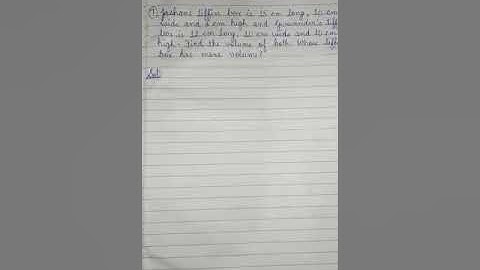 tiffin box is 15 cm long, 10 cm
wide and cm high and tiff
box is 12 cm long, 10 cm wide and 10 cm
high. Find the volume of both. Whose tiff
box has more volume?
Sol